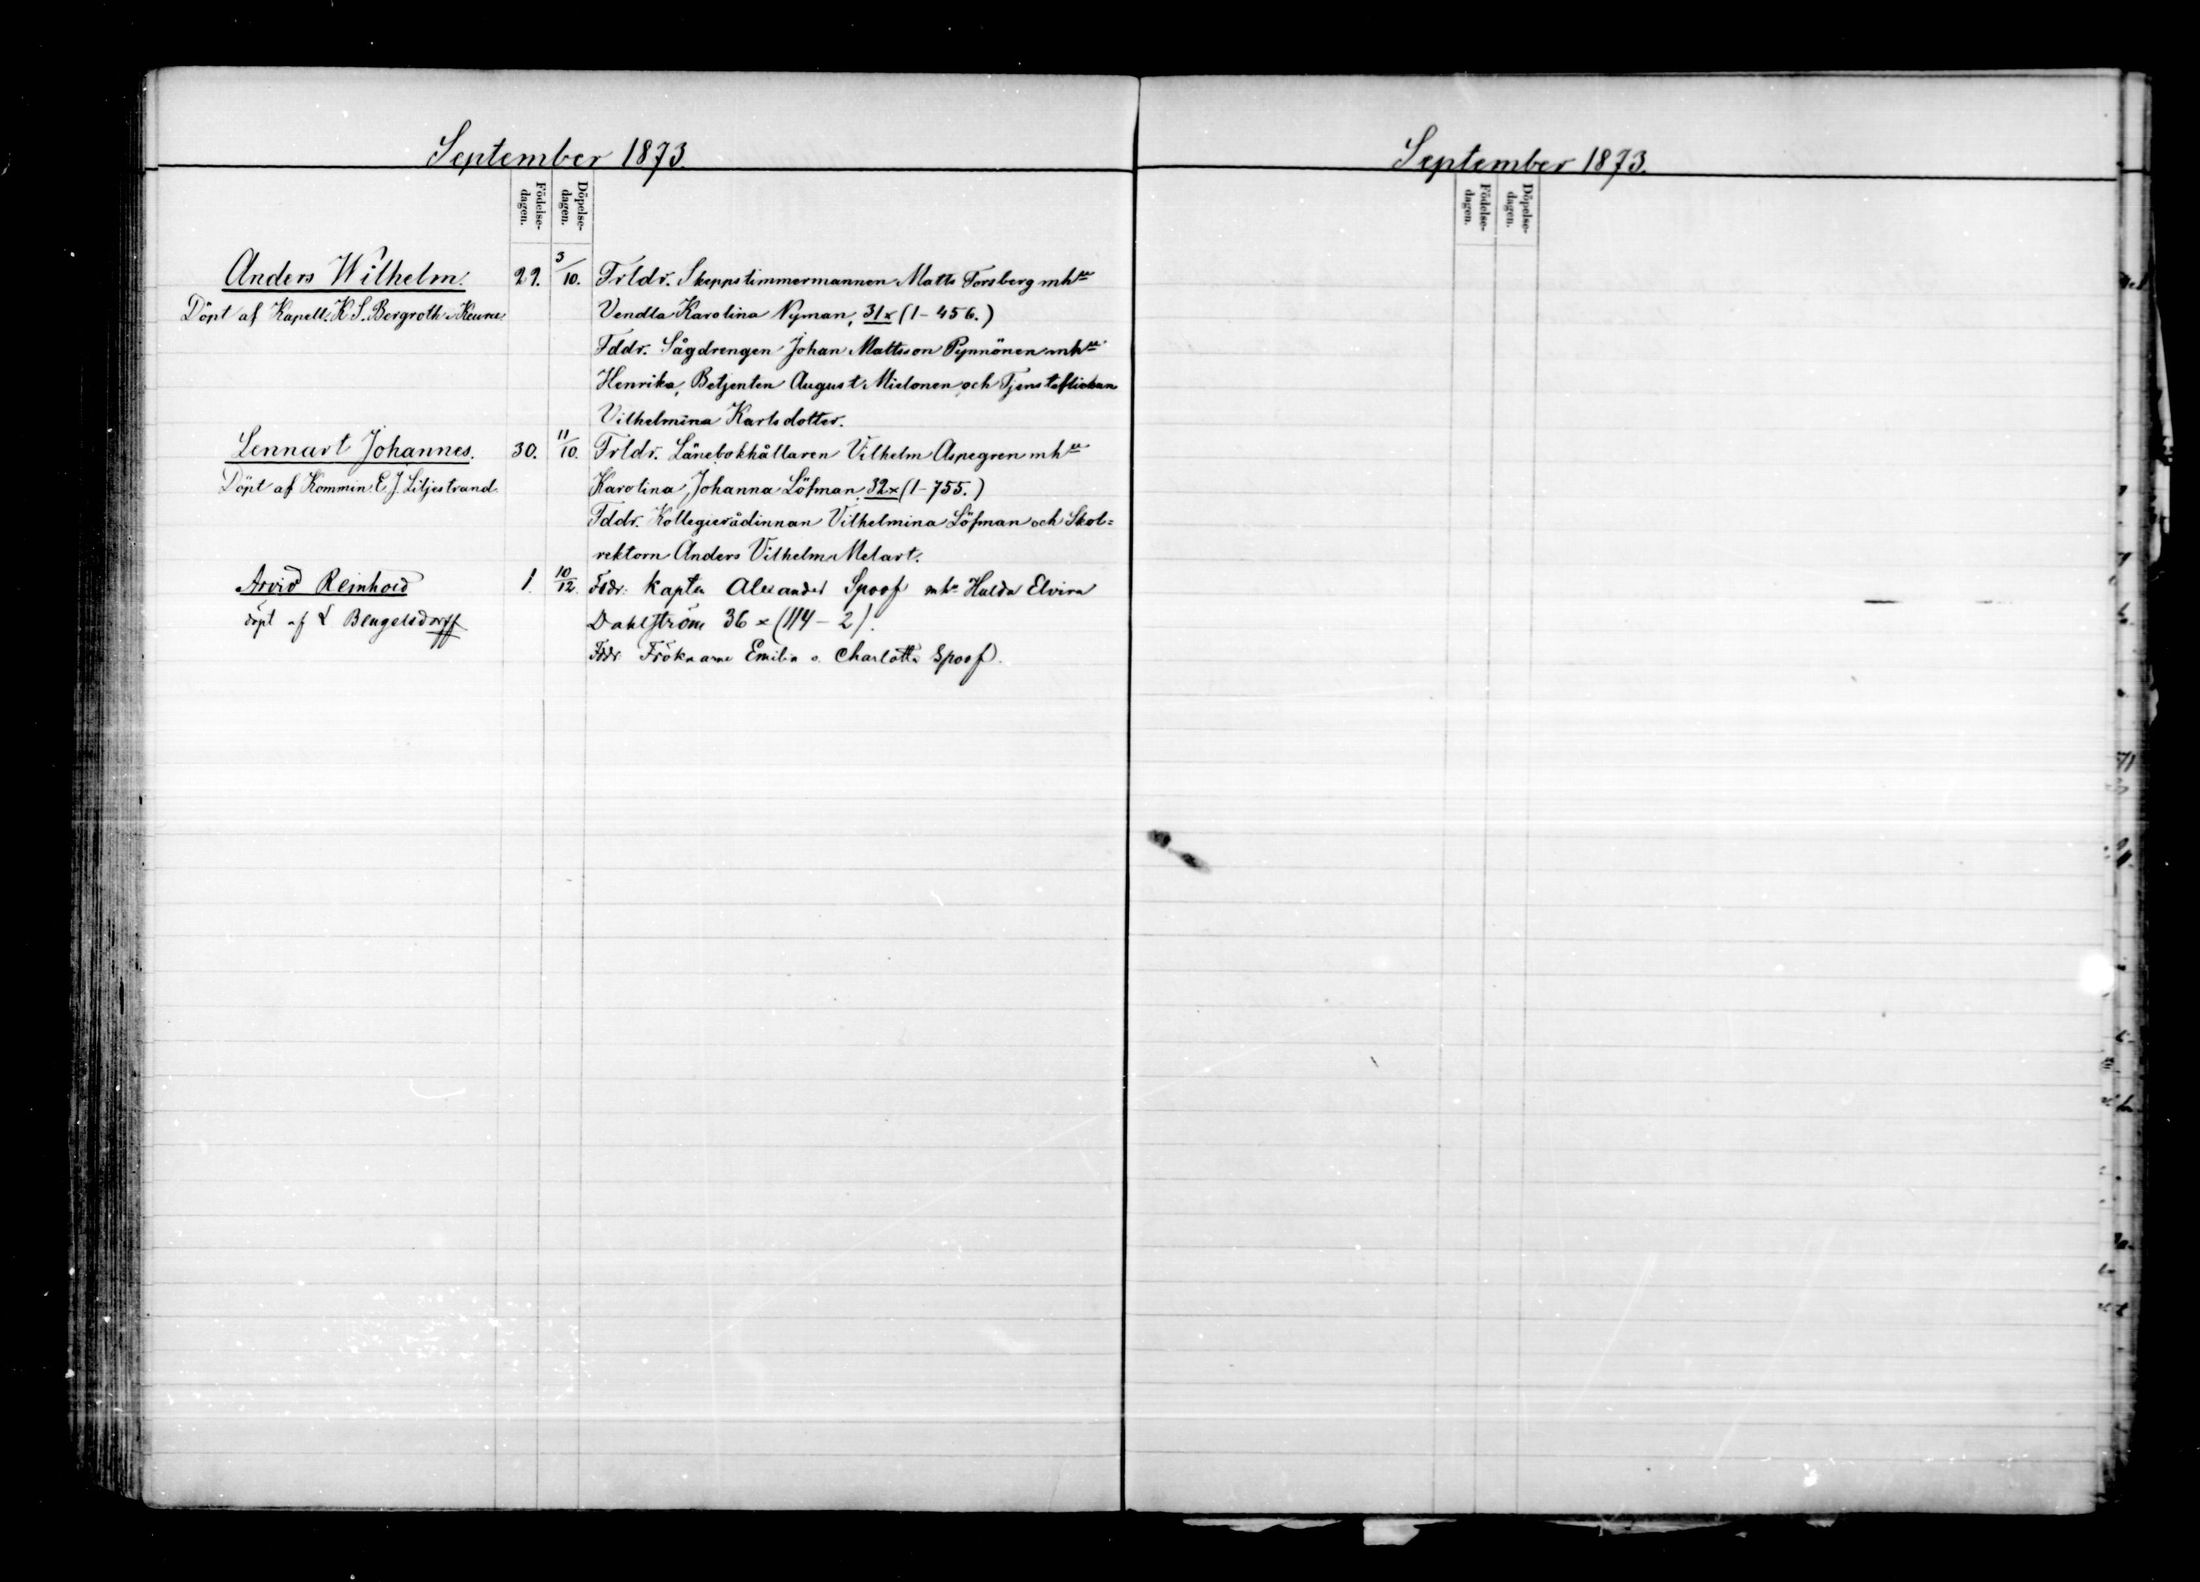 September 1873.
Födelse-
dagen.
Döpelse-
dagen.
Anders Wilhelm.
29.
5/10.
Frldr. Skeppstimmermannen Matts Forsberg mhu
Döpt af Kapell. K. S. Bergroth i Keuru.
Vendla Karolina Nyman, 31x (1-456.)
Fddr. Sågdrengen Johan Mattsson Pynnönen mhu
Henrika, Betjenten August Mielonen och Tjensteflickan
Vilhelmina Karlsdotter.
Lennart Johannes.
30.
11/10.
Frldr. Länebokhållaren Vilhelm Aspegren mhu
Döpt af Kommin. C. J. Liljestrand
Karolina Johanna Löfman, 32x (1-755.)
Fddr. Kollegierådinnan Vilhelmina Löfman och Skol=
rektorn Anders Vilhelm Melart.
Arvid Reinhold
1.
10/12.
kapten Alexander Spoof mhu Hulda Elvira
döpt af L Bengelsdorff
Dahlström 36 x (114 - 2).
Fddr Fröknarne Emilia o. Charlotta Spoof.
September 1873.
Födelse-
dagen.
Döpelse-
dagen.